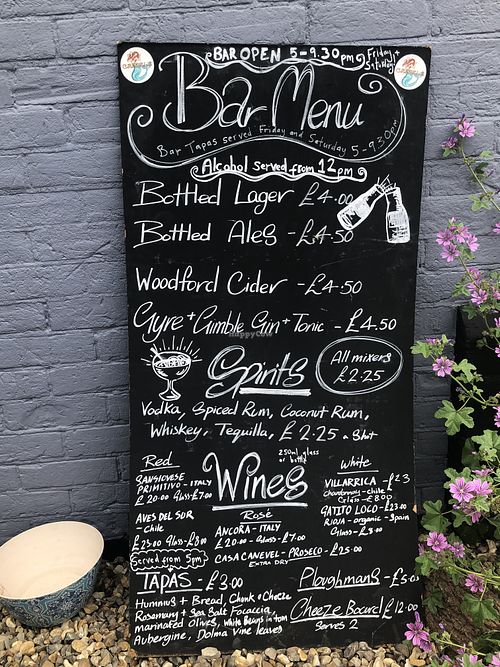 BAR OPEN 5-9.30pm Friday + Saturday
Bar Menu
Bar Tapas served Friday and Saturday 5-9.30pm
Alcohol served from 12pm
Bottled Lager £4.00
Bottled Ales - £4.50
Woodford Cider - £4.50
Gyre + Gimble Gin + Tonic - £4.50
Spirits
All mixers
£2.25
Vodka, Spiced Rum, Coconut Rum,
Whiskey, Tequilla, £2.25 a shot
Wines
250ml glass
or bottle
Red
SANGIOVESE
PRIMITIVO - ITALY
£20.00 Glass - £7.00
AVES DEL SUR
- Chile
£23.00 Glass - £8.00
Rosé
ANCORA - ITALY
£20.00 - Glass - £7.00
CASA CANEVEL - PROSECO - £25.00
EXTRA DRY
White
VILLARRICA - £23
Chardonnay - Chile
Glass - £8.00
GATITO LOCO - £23.00
RIOJA - organic - Spain
Glass - £8.00
Served from 5pm
TAPAS - £3.00
Hummus + Bread, Chonk + Cheeze
Rosemary + Sea Salt Focaccia,
marinated Olives, White Beans in tom
Aubergine, Dolma Vine leaves
Ploughmans - £5.0
Cheeze Board £12.00
Serves 2